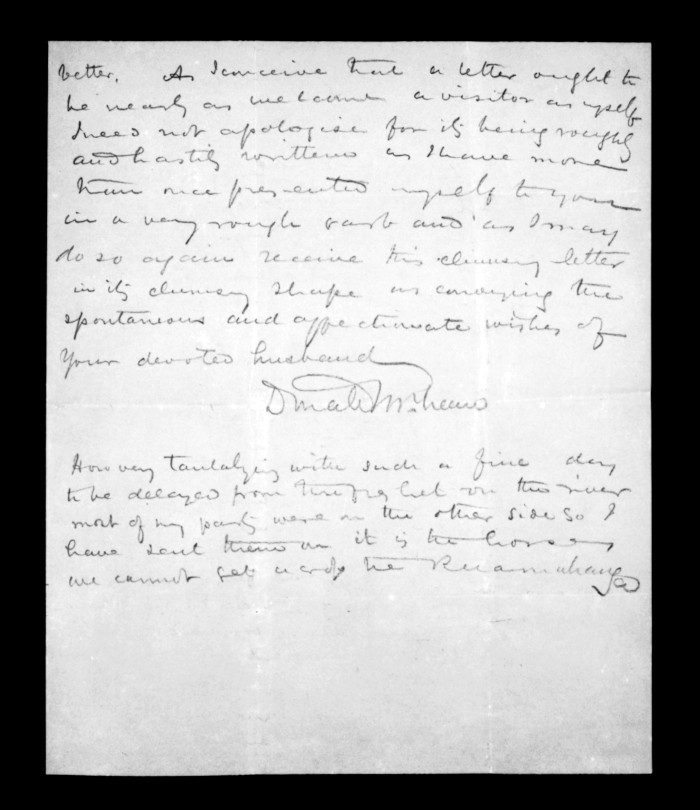 better. As I conceive that a letter ought to
be nearly as welcome a visitor as myself
I need not apologise for its being roughly
and hastily written as I have more
than once presented myself to you
in a very rough garb and as I may
do so again receive this clumsy letter
in its clumsy shape as conveying the
spontaneous and affectionate wishes of
Your devoted husband
Donald McLean
How very tantalizing with such a fine day
to be delayed from the freshet on the river
most of my party were on the other side so I
have sent them on it is the horses
we cannot get across the Ruamahanga